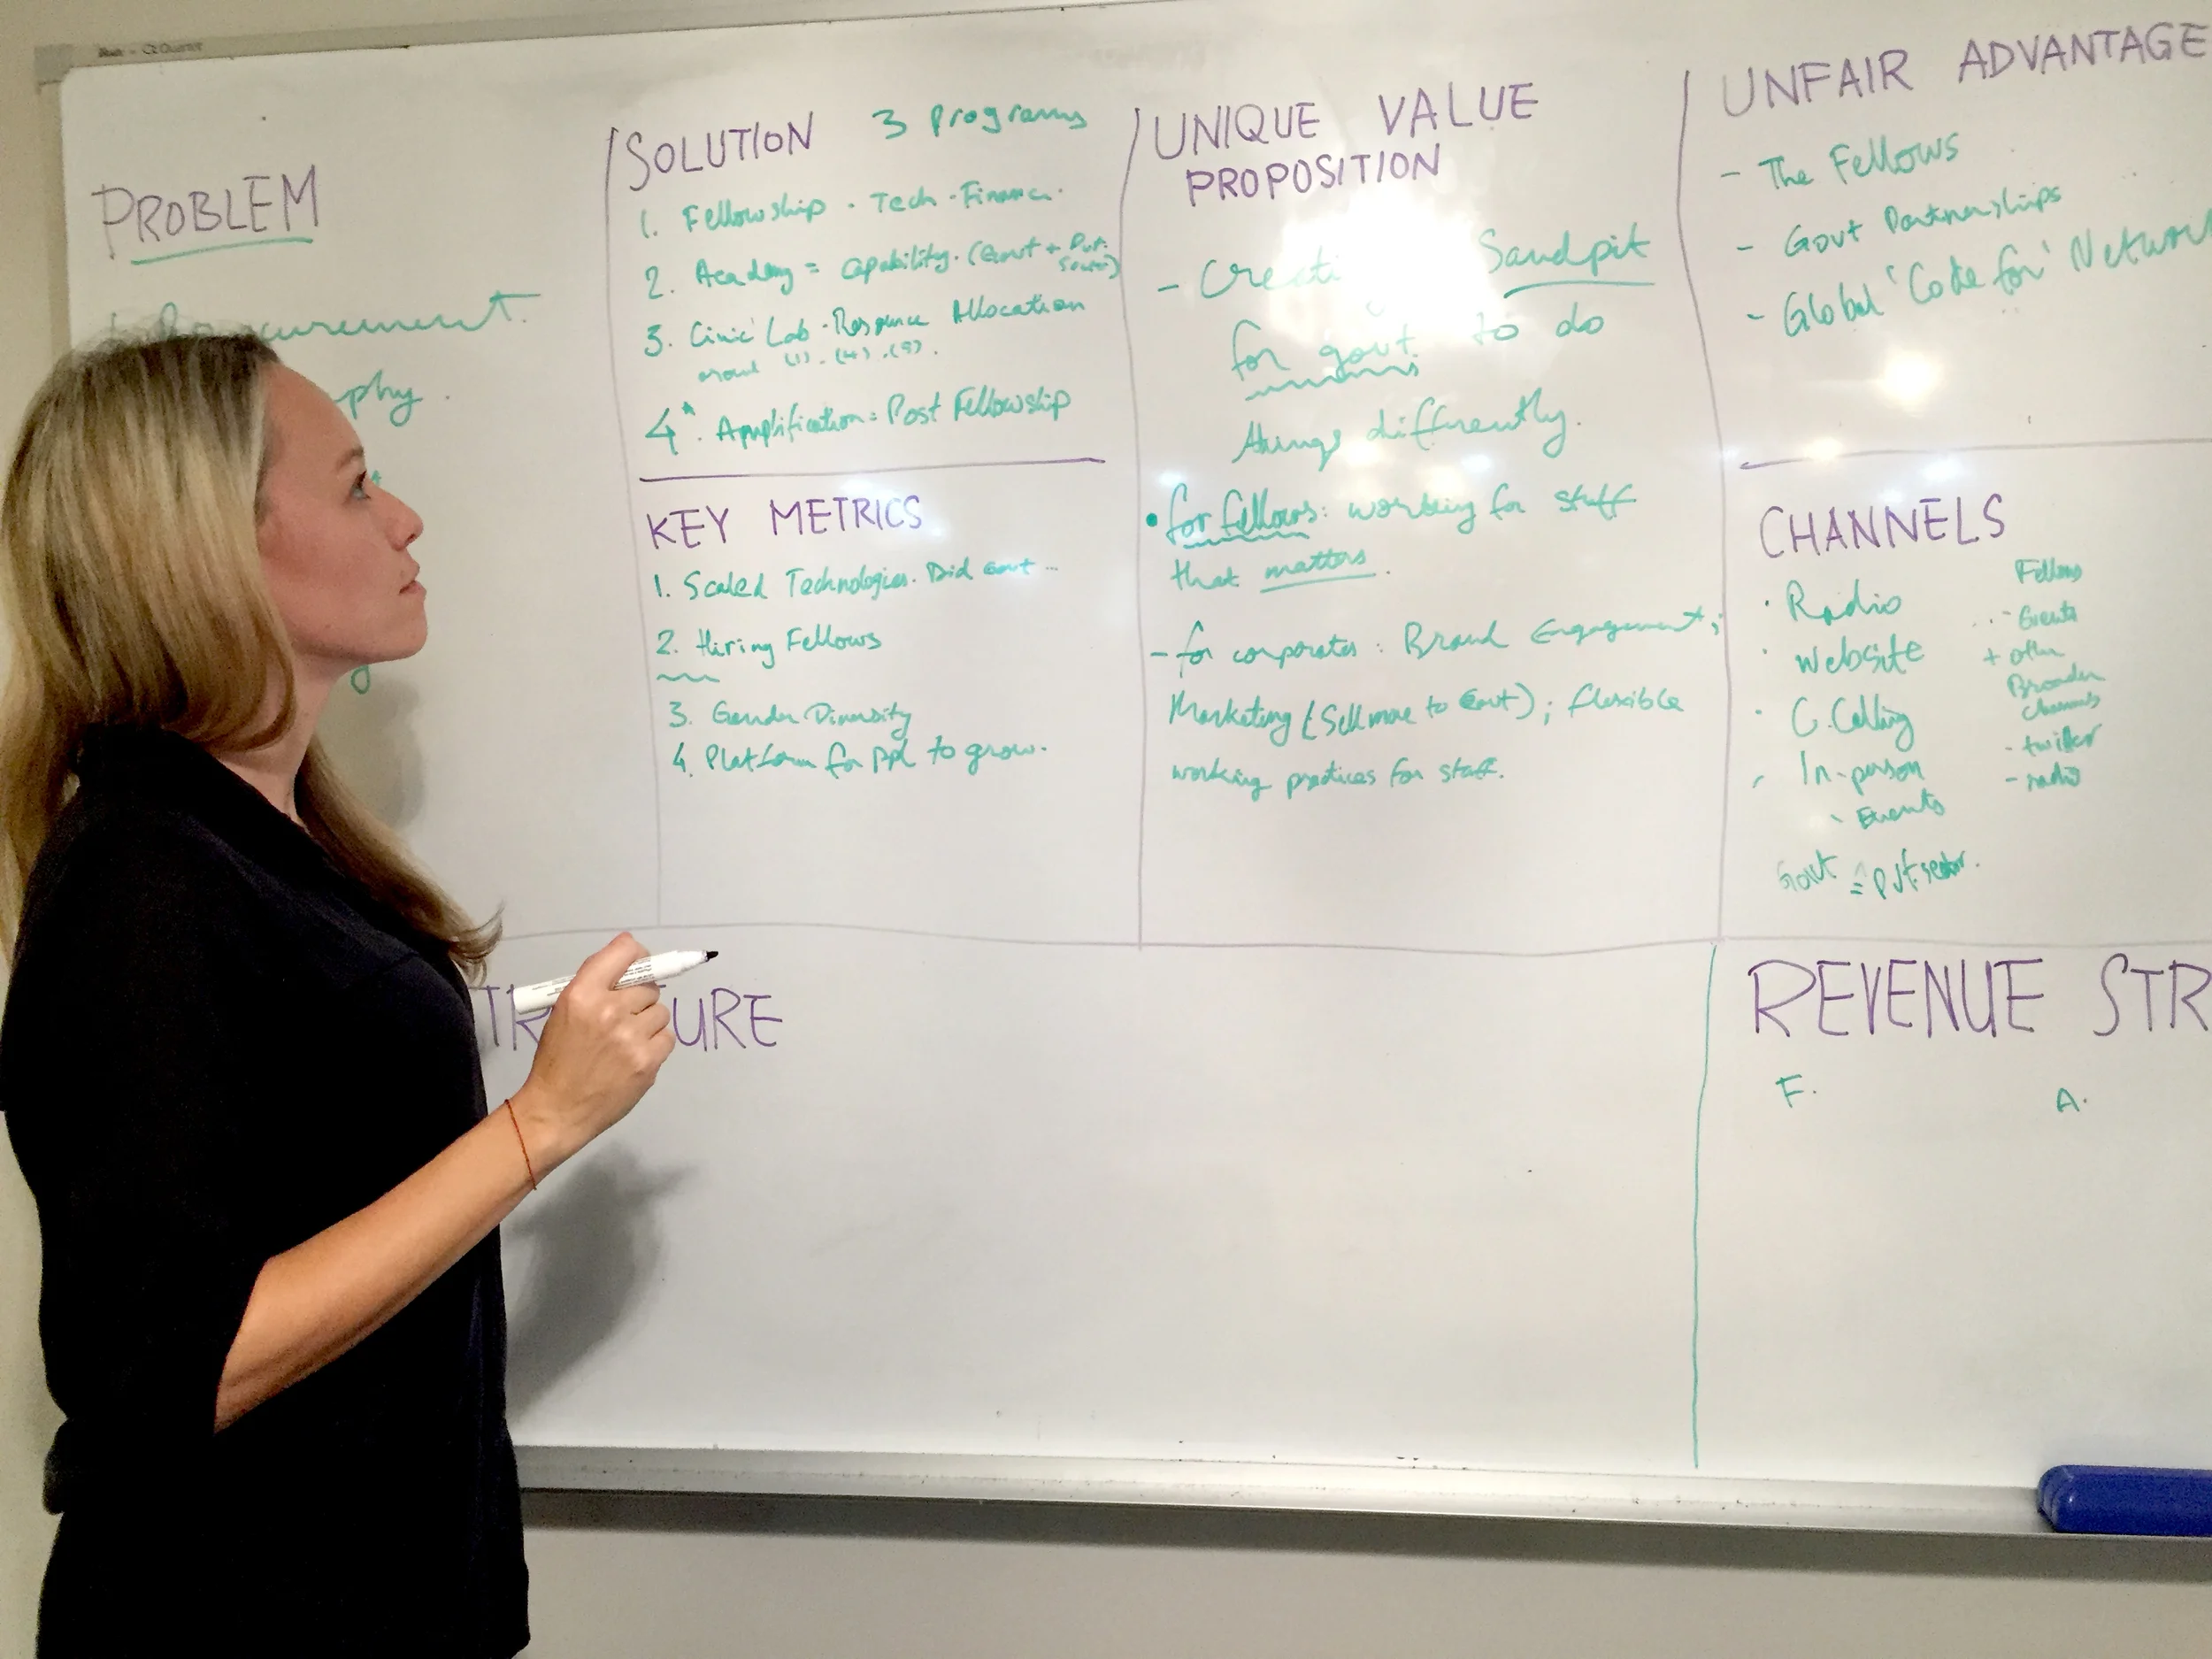 PROBLEM
SOLUTION 3 Programs
1. Fellowship · Tech · Finance.
2. Academy = Capability. (Govt +
3. Civic Lab · Resource Allocation
around (1). (4).
4*. Amplification = Post Fellowship
KEY METRICS
1. Scaled Technologies. Did Govt ...
2. Hiring Fellows
3. Gender Diversity
4. Platform for ppl to grow.
UNIQUE VALUE
PROPOSITION
- Sandpit
for govt. to do
things differently.
• for fellows: working for stuff
that matters.
- for corporates: Brand Engagement;
Marketing (Sell more to Govt); flexible
working practices for staff.
UNFAIR ADVANTAGE
- The Fellows
- Govt Partnerships
- Global 'Code for'
CHANNELS
· Radio
· Website
· C. Calling
- In-person
- Events
Govt = pvt. sector.
Fellows
- Events
+ other
Broader
channels
- twitter
- radio
URE
REVENUE STR
F. A.